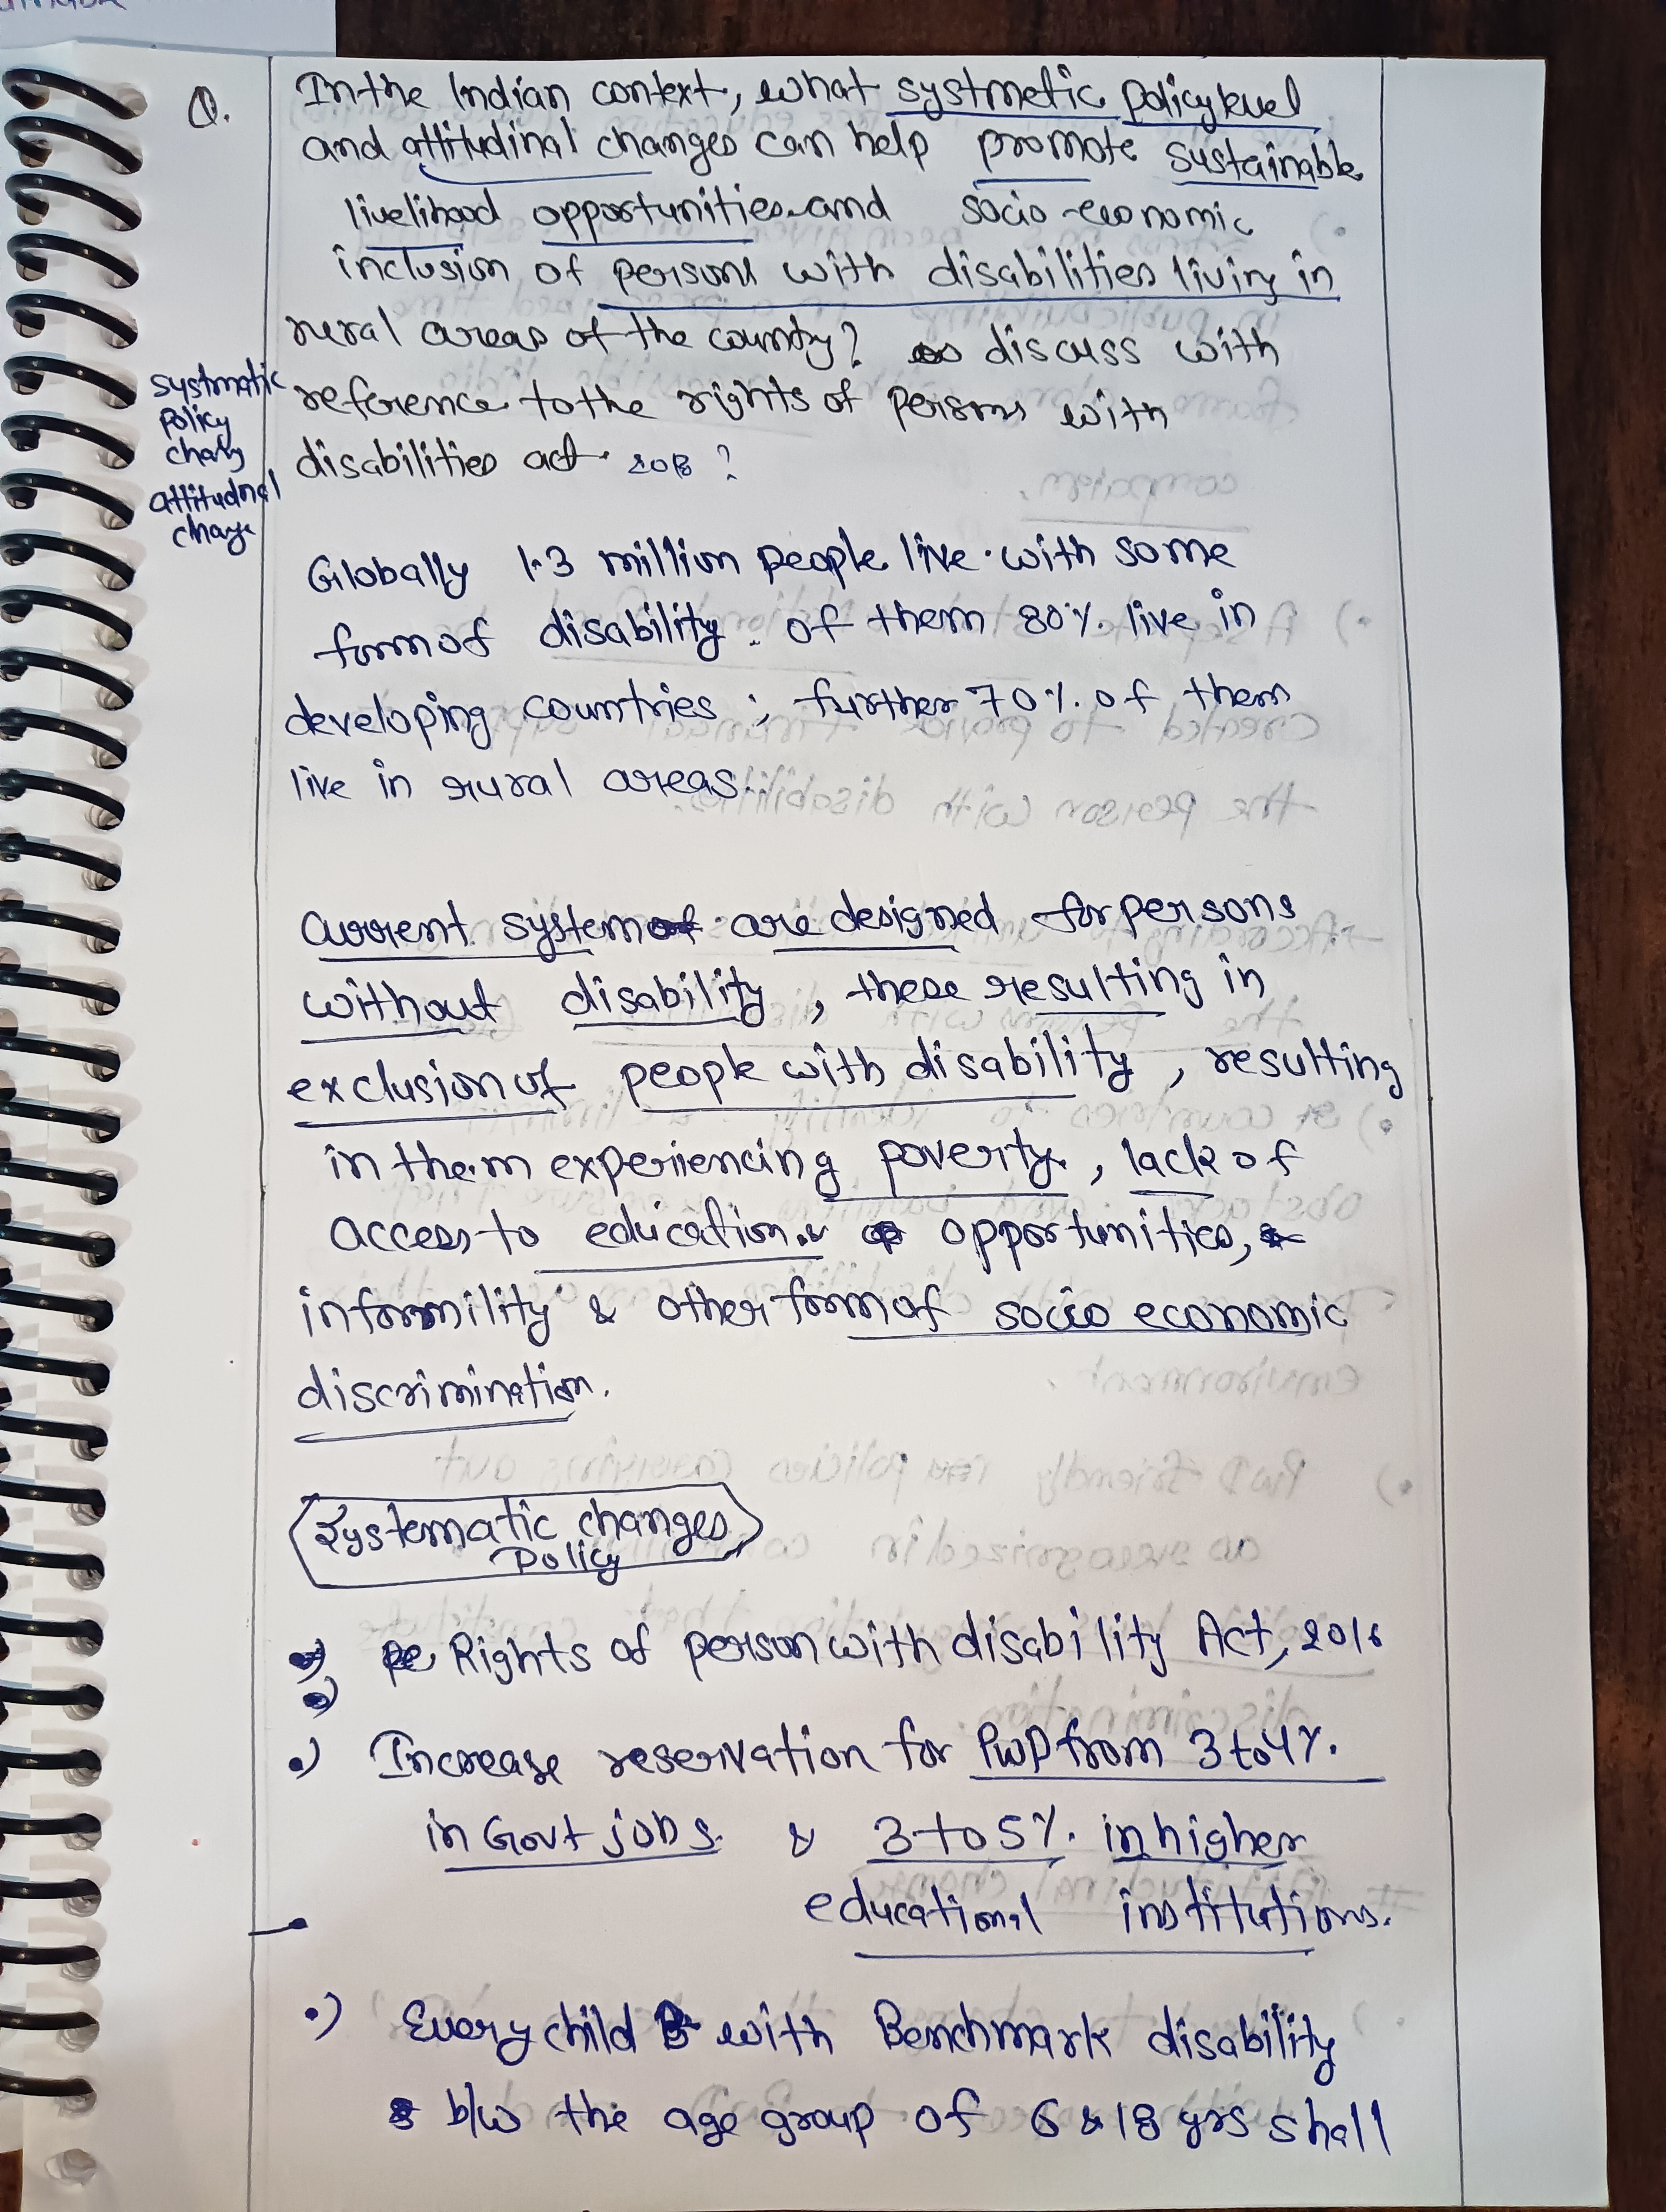 Q. In the Indian context, what systmetic policy level
and attitudinal changes can help promote sustainable
livelihood opportunities and socio-economic
inclusion of persons with disabilities living in
rural areas of the country? discuss with
reference to the rights of persons with
disabilities act 2016 ?
systmatic
policy
chang
attitudnal
change
Globally 1.3 million people live with some
form of disability. of them 80% live in
developing countries ; further 70% of them
live in rural areas.
Current system are designed for persons
without disability, these resulting in
exclusion of people with disability, resulting
in them experiencing poverty, lack of
access to education & opportunities,
informility & other form of socio economic
discrimination.
Systematic changes
Policy
Rights of person with disability Act, 2016
•) Increase reservation for PwD from 3 to 4%.
in Govt jobs & 3 to 5%. in higher
educational institutions.
•) Every child with Benchmark disability
b/w the age group of 6 & 18 yrs shall